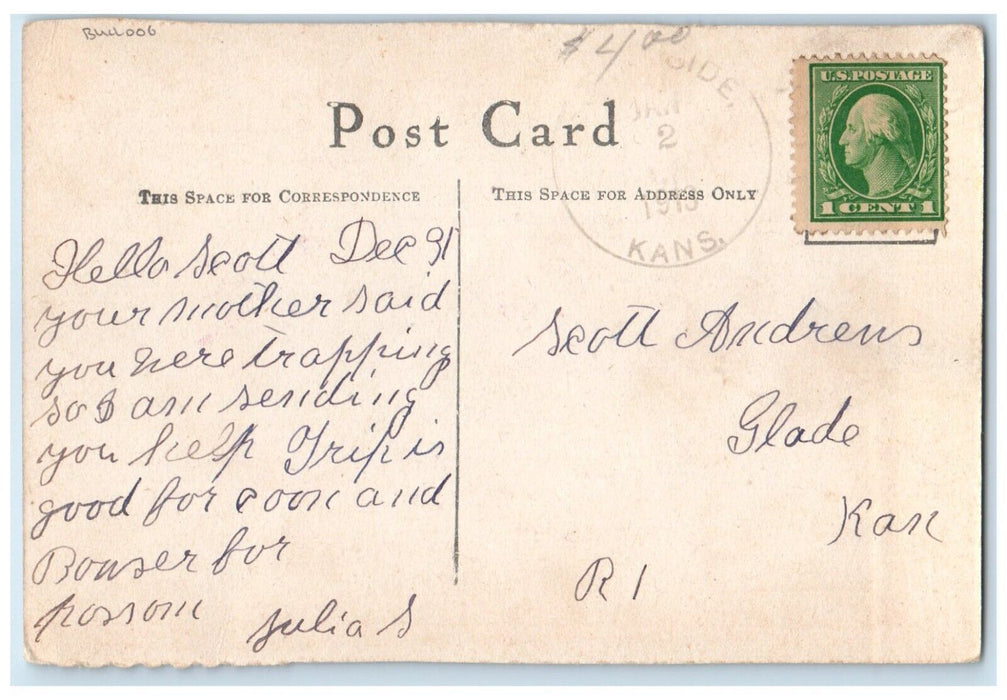 Bud006
$4.00
SIDE,
JAN
2
KANS.
U.S. POSTAGE
1 CENT 1
Post Card
THIS SPACE FOR CORRESPONDENCE
THIS SPACE FOR ADDRESS ONLY
Hello Scott Dec 31
your mother said
you were trapping
so I am sending
you help Trip is
good for coon and
Bowser for
possom
Julia S
Scott Andrews
Glade
Kan
R 1